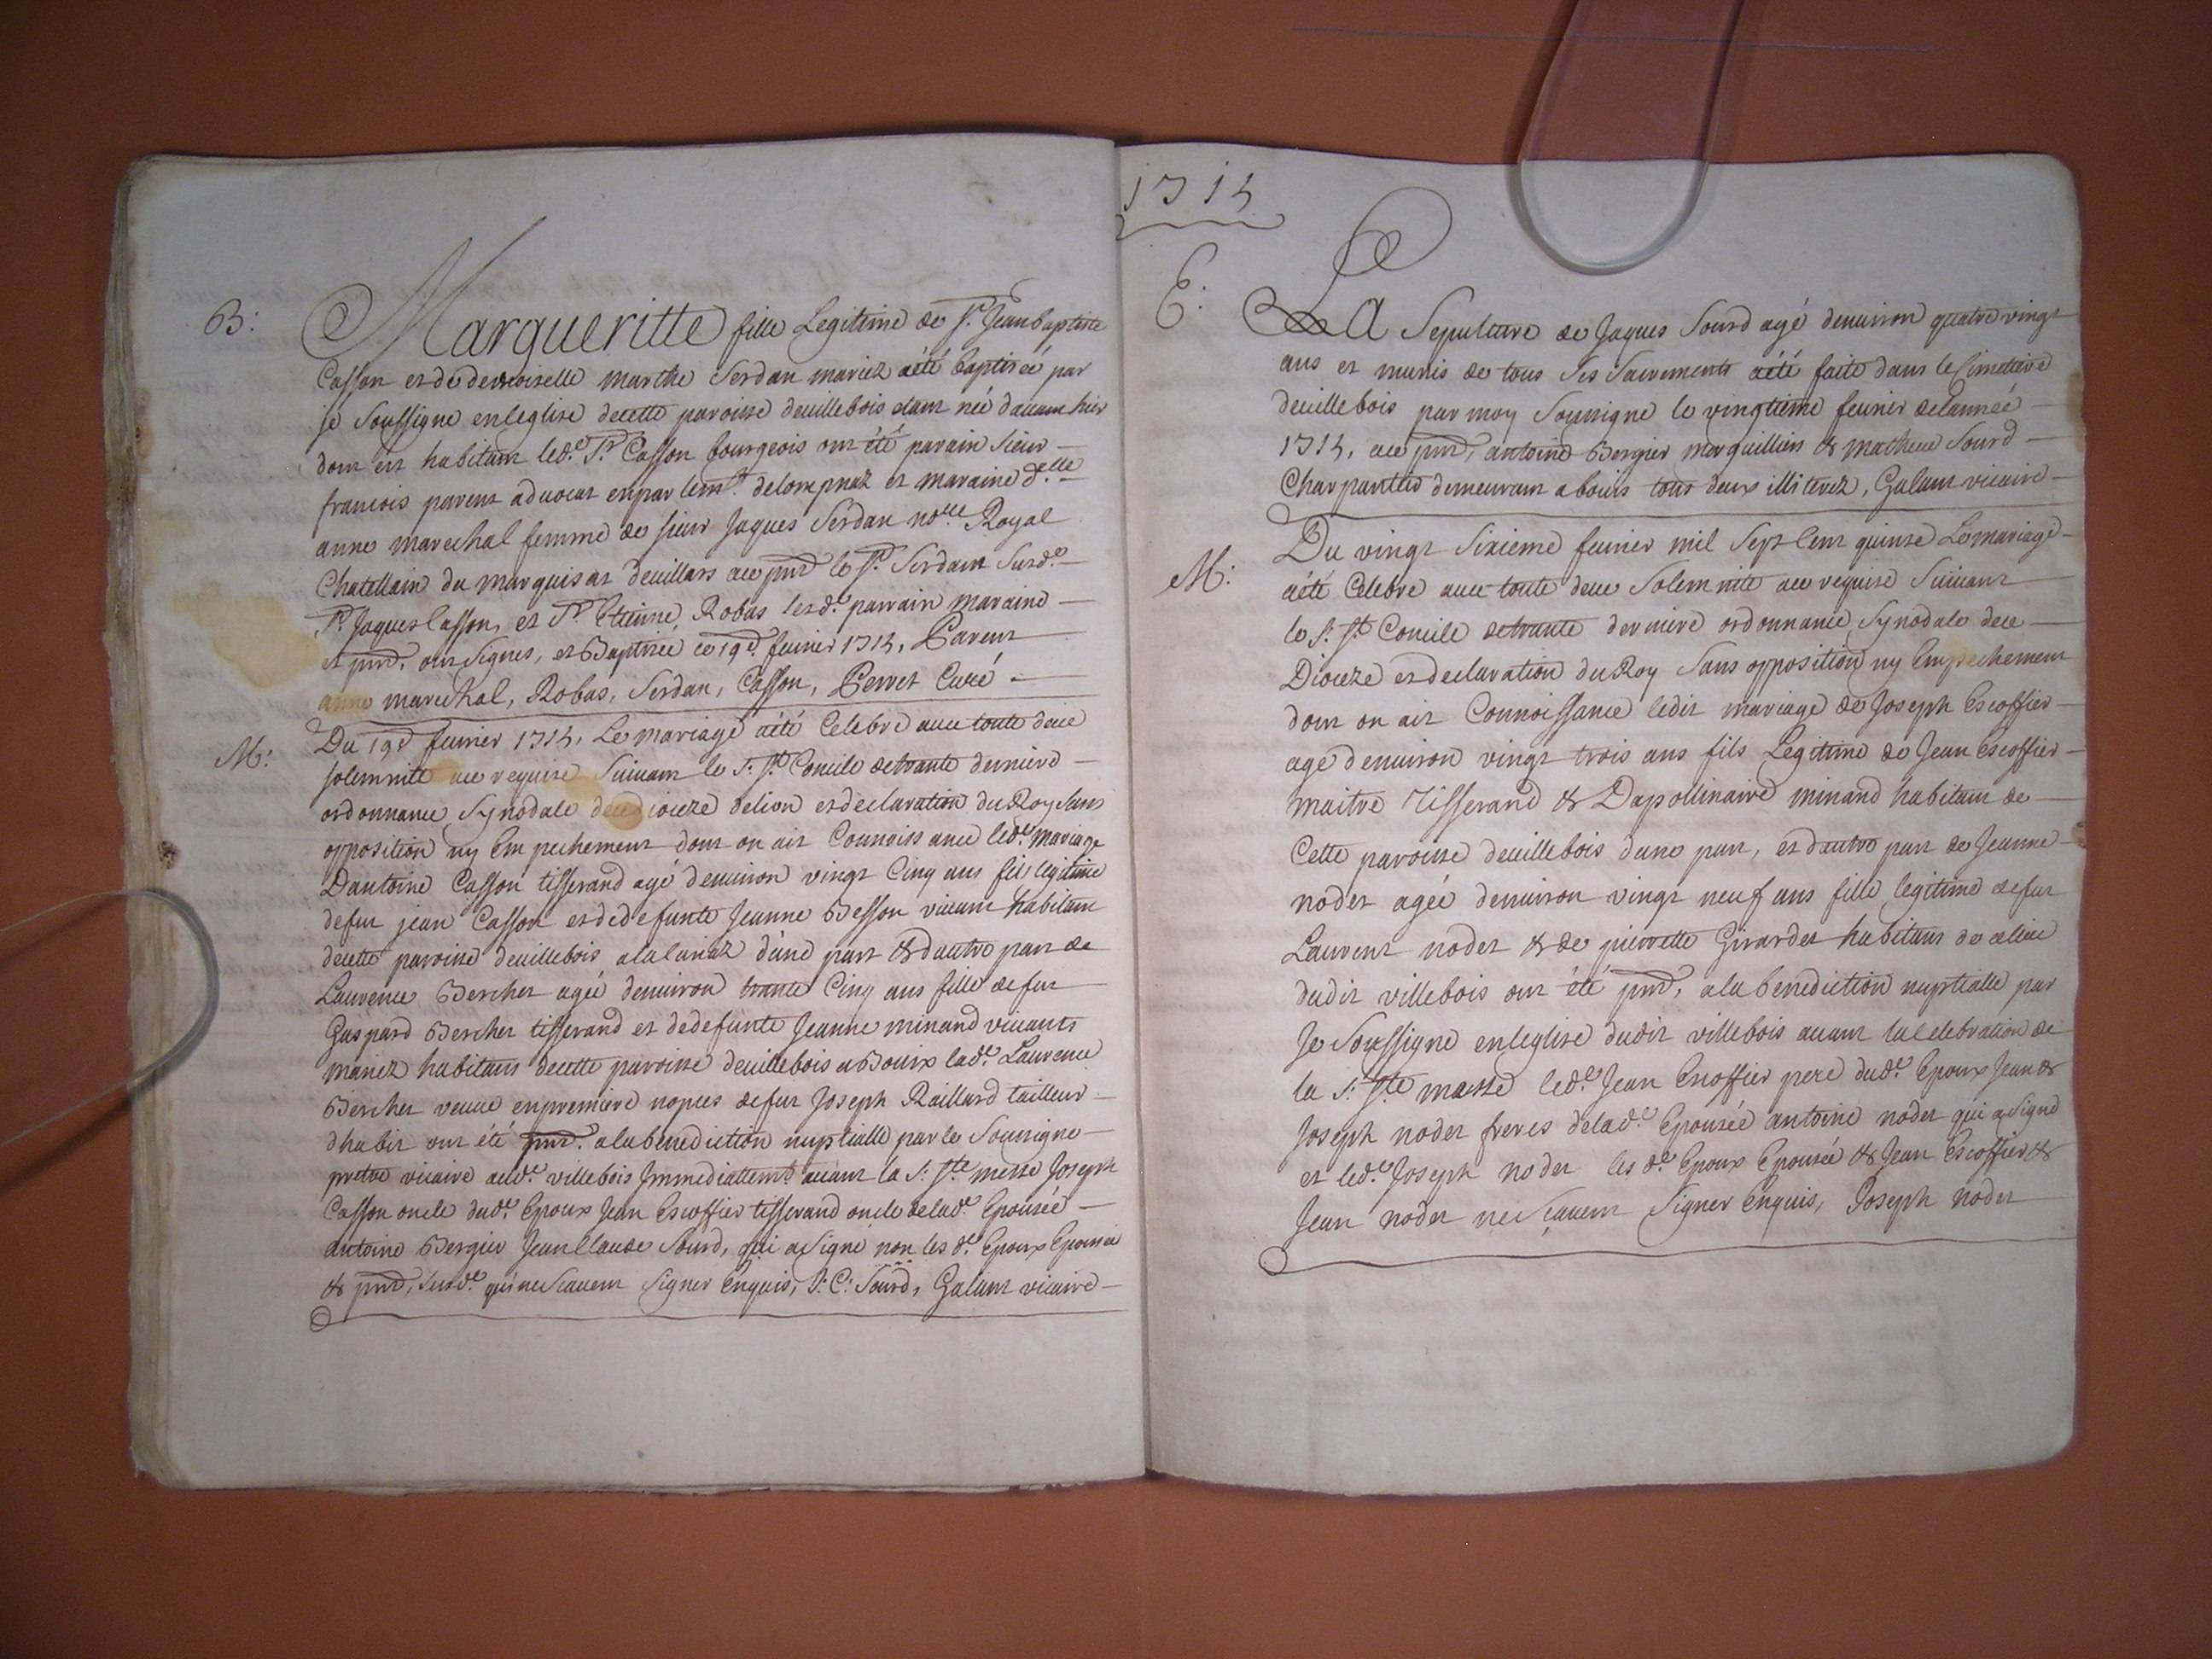 B:
Margueritte fille Legitime de Sr. Jean baptiste
Casson et de demoiselle marthe Serdan mariez aété baptiseé par
je Soussigne en leglise de cette paroisse devillebois etant neé davant hier
dont est habitant led.e Sr. Casson bourgeois ont été parain Sieur
francois parent advocat en parlem.t de lompnaz et maraine d.elle
anne marechal femme de sieur Jaques Serdan no.re Royal
Chatellain du marquisat devillars ace pnd le Sr. Serdan Susd.e
Sr. Jaques Casson, et Sr. Etienne Robas lesd.e parrain maraine
et pnd, ont Signes, et Baptisee ce 19e. fevrier 1715, Parent
anne marechal, Robas, Serdan, Casson, Perret Curé
M:
Du 19e fevrier 1715. Le mariage aété Celebré avec toute deue
solemnité ace requise Suivant le S. St. Concile detrante derniere
ordonnance Synodale de ce dioceze delion et declaration du Roy Sans
opposition ny Empechement dont on ait Connoissance led.e mariage
Dantoine Casson tisserand agé denviron vingt Cinq ans fils legitime
defut jean Casson et dedefunte Jeanne Besson vivant habitant
decette paroisse devillebois d'une part & dautre part de
Laurence Bercher agée denviron trante Cinq ans fille defut
Gaspard Bercher tisserand et dedefunte Jeanne minand vivants
mariez habitans decette paroisse devillebois a Bouix lad.e Laurence
Bercher veuve en premiere nopces defut Joseph Raillard tailleur
dhabit ont été pnd. alabenediction nuptialle par le Soussigne
pretre vicaire aud.e villebois Immediattem.t avant la S. Ste messe Joseph
Casson oncle dud.e Epoux Jean Escoffier tisserand oncle delad.e Epouseé
antoine Bergier Jean Claude Sourd, qui a Signé non les d.e Epoux Epousee
& pnd, Susd.e qui ne Scavent Signer Enquis, J: C: Sourd, Galant vicaire
1715
E:
La Sepulture de Jaques Sourd agé denviron quatre vingt
ans et munis de tous Ses Sacrements aété faite dans le Cimetiere
devillebois par moy Soussigné le vingtieme fevrier delanneé
1715, ace pnd, antoine Bergier marguillier & mathieu Sourd
Charpantier demeurant abouis tous deux illiterez, Galant vicaire
M:
Du vingt Sixieme fevrier mil Sept Cent quinse Le mariage
aété Celebré avec toute deue Solemnité ace requise Suivant
le S. St. Concile detrante derniere ordonnance Synodale de ce
Dioceze et declaration du Roy Sans opposition ny Empechement
dont on ait Connoissance ledit mariage de Joseph Escoffier
agé denviron vingt trois ans fils Legitime de Jean Escoffier
maitre Tisserand & Dapollinaire minand habitant de
Cette paroisse devillebois dune part, et dautre part de Jeanne
nodet agée denviron vingt neuf ans fille legitime defut
Laurent nodet & de pierrette Girardet habitans de
dudit villebois ont été pnd, alabenediction nuptialle par
Je Soussigné en leglise dudit villebois avant la Celebration de
la S. Ste messe led.e Jean Escoffier pere dud.e Epoux Jean &
Joseph nodet freres delad.e Epouseé antoine nodet qui a Signé
et led.e Joseph nodet les d.e Epoux Epouseé & Jean Escoffier &
Jean nodet ne Sçavent Signer Enquis, Joseph nodet